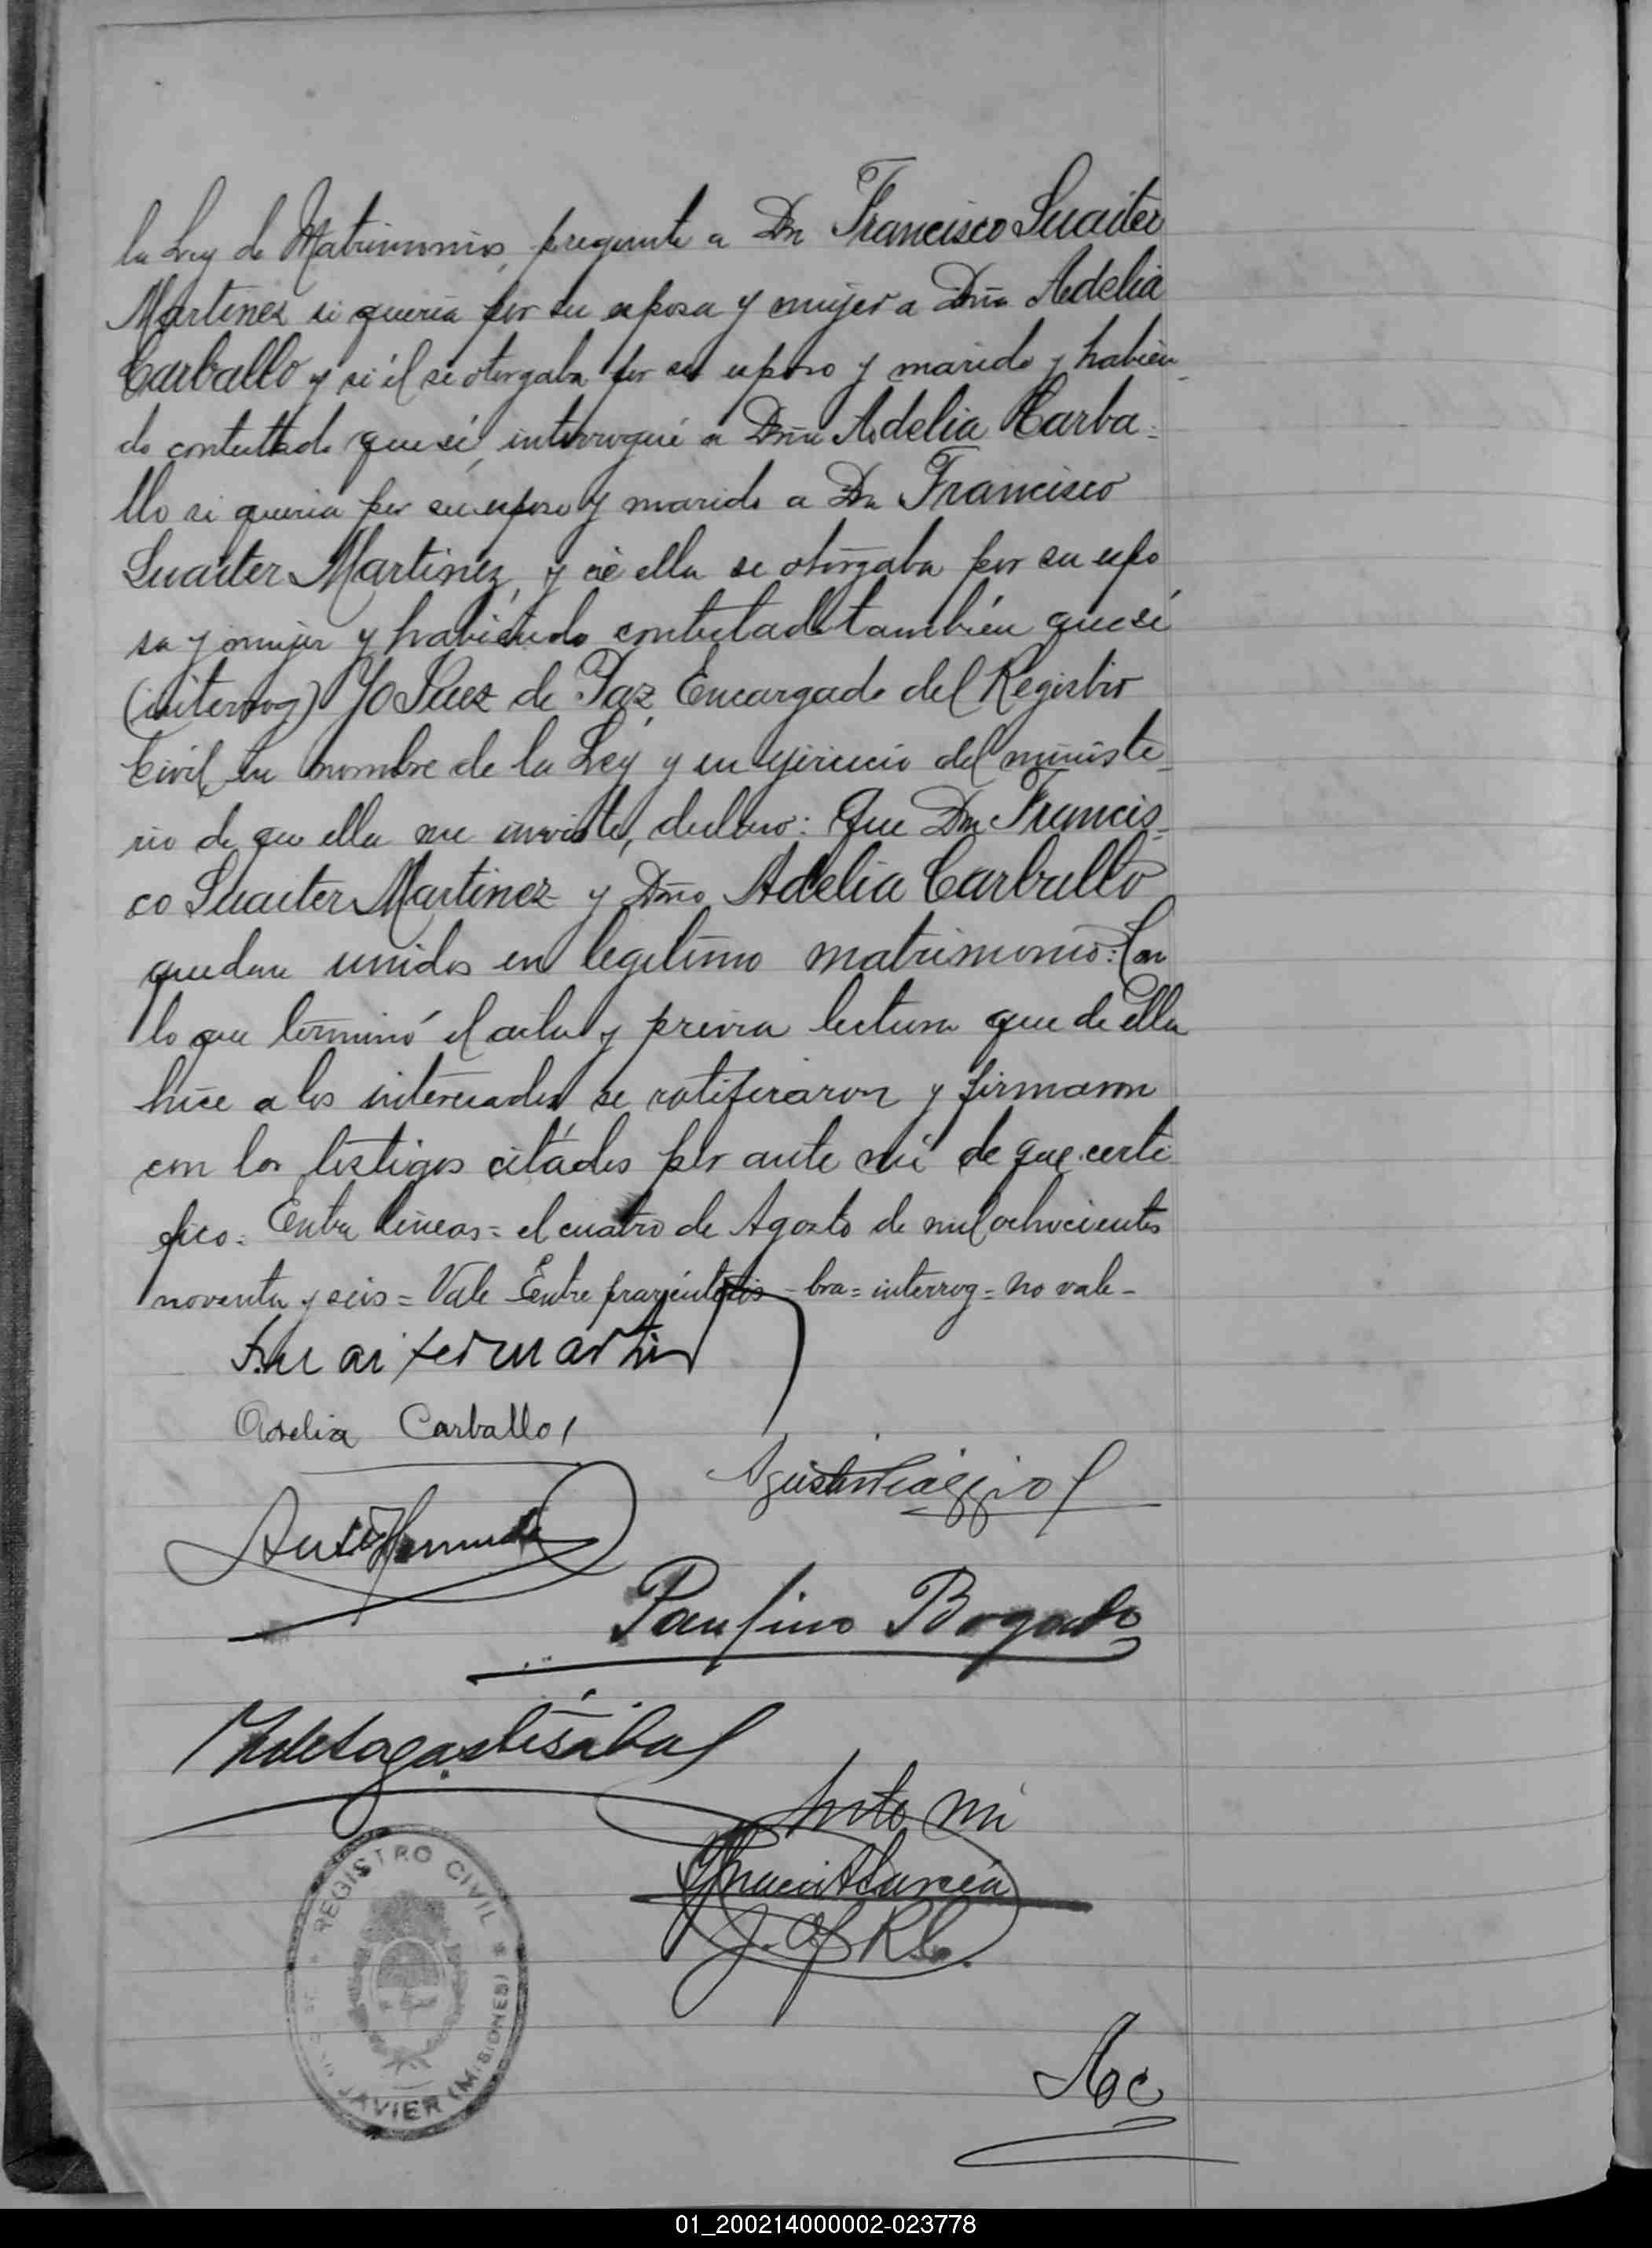 la Ley de Matrimonios, pregunte a Dn Francisco Suaiter
Martinez si queria por su esposa y mujer a Dña Adelia
Carballo y si él se otorgaba por su esposo y marido y habien
do contestado que sí, interrogué a Dña Adelia Carba-
llo si queria por su esposo y marido a Dn Francisco
Suaiter Martinez, y si ella se otorgaba por su espo
sa y mujer y habiendo contestado también que sí
(interrog) Yo Juez de Paz, Encargado del Registro
Civil, en nombre de la Ley y en ejercicio del ministe-
rio de que ella me inviste, declaro: Que Dn Francis-
co Suaiter Martinez y Dña Adelia Carballo
quedan unidos en legitimo matrimonio: Con
lo que terminó el acta y previa lectura que de ella
hice a los interesados se ratificaron y firmaron
con los testigos citados por ante mi de que certi
fico. Entre lineas = el cuatro de Agosto de mil ochocientos
noventa y seis = Vale Entre parentesis - bra = interrog = no vale -
Adelia Carballo
Agustin
Paulino Bogado
Ante mi
Garcia
J. R. C.
REGISTRO CIVIL
JAVIER (MISIONES)
01_200214000002-023778